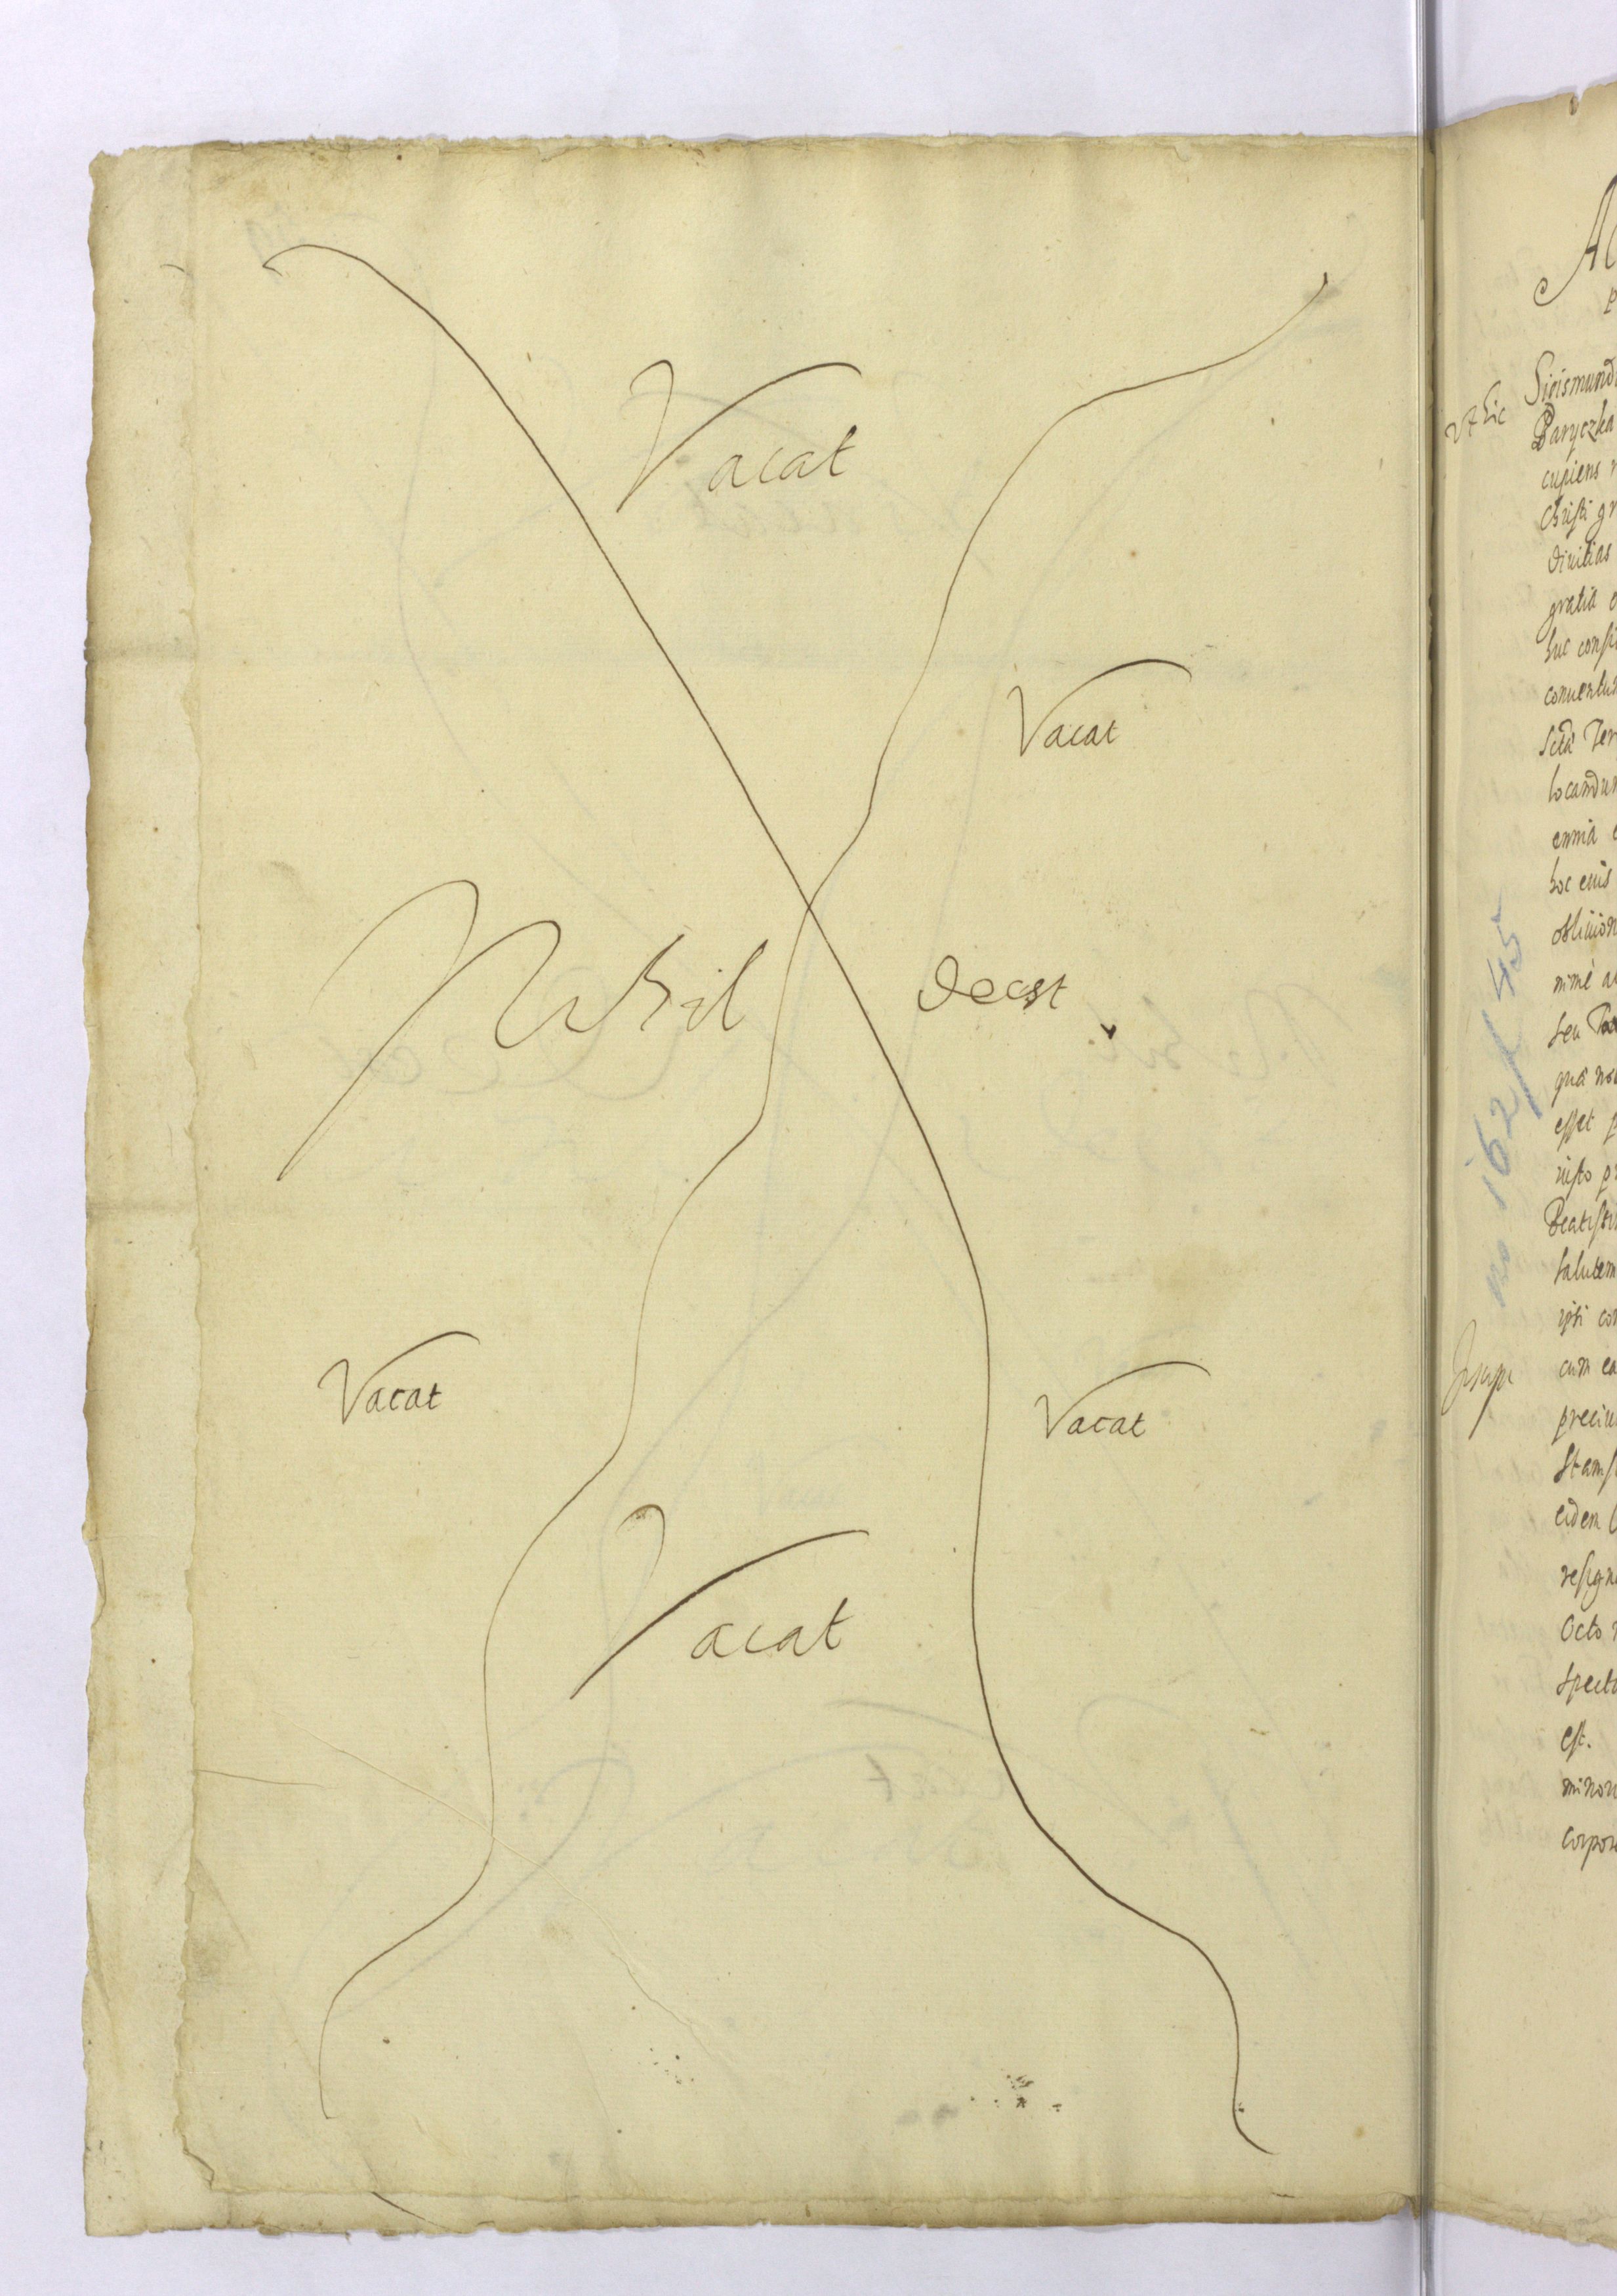 Vacat
Vacat
Nihil deest
Vacat
Vacat
Vacat
Sigismund
Baryczka
cupiens
Christi gr
divitias
gratia
huc consti
conventu
Scta Ter
locandum
omnia
hoc eius
oblivion
nimè
seu
esset p
iusto pr
Beatissi
salutem
ipsi con
cum ea
preciu
Stanisl
eidem
resign
Octo
specta
est.
minor
corpor
no 162/45
ut hic